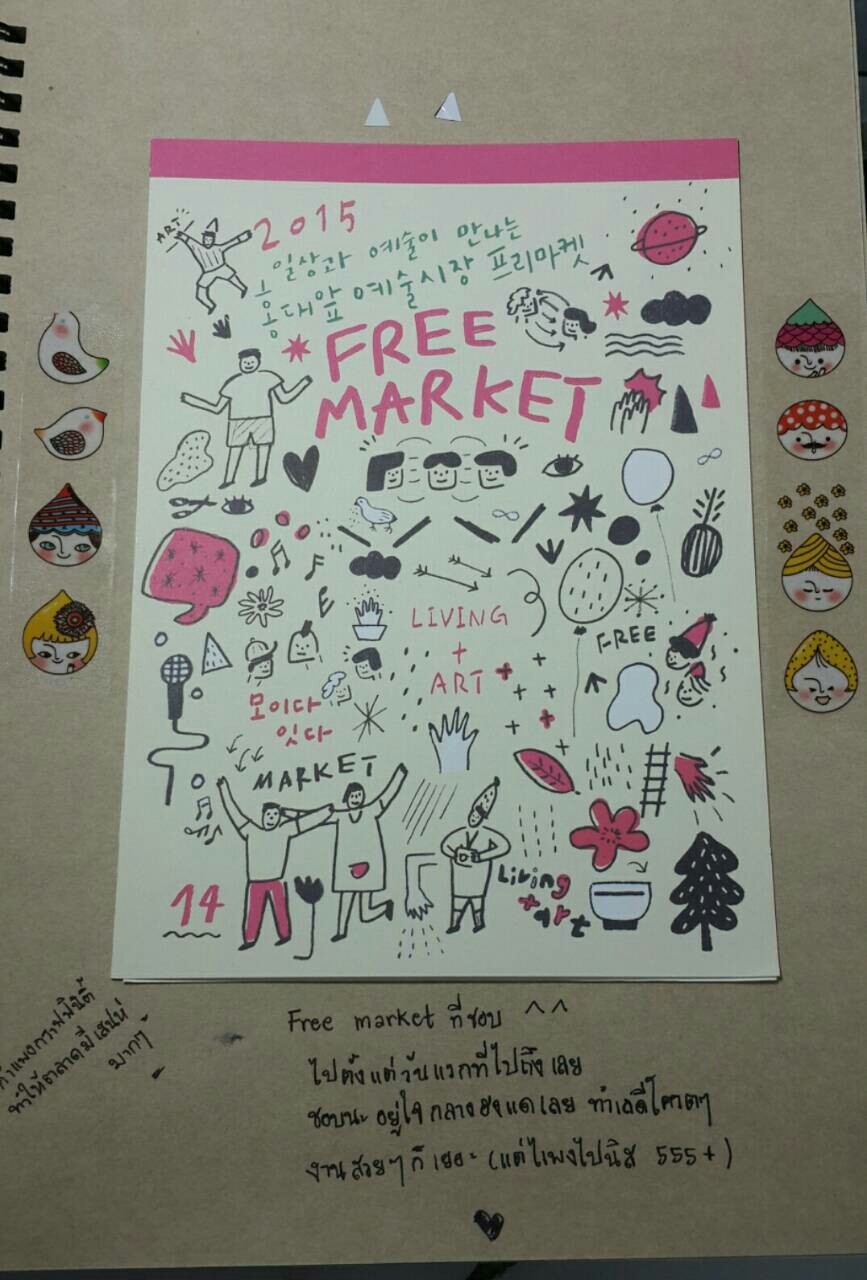 ART
2015
일상과 예술이 만나는
홍대앞 예술시장 프리마켓
FREE
MARKET
LIVING
+
ART
FREE
모이다
잇다
MARKET
Living
+art
14
กำแพงกราฟฟิตี้
ทำให้ตลาดมีเสน่ห์
มากๆ
Free market ที่ชอบ ^^
ไปตั้งแต่วันแรกที่ไปถึงเลย
ชอบนะ อยู่ใจกลางฮงแดเลย ทำเลดีโคตรๆ
งานสวยๆ ก็เยอะ (แต่แพงไปนิส 555+)